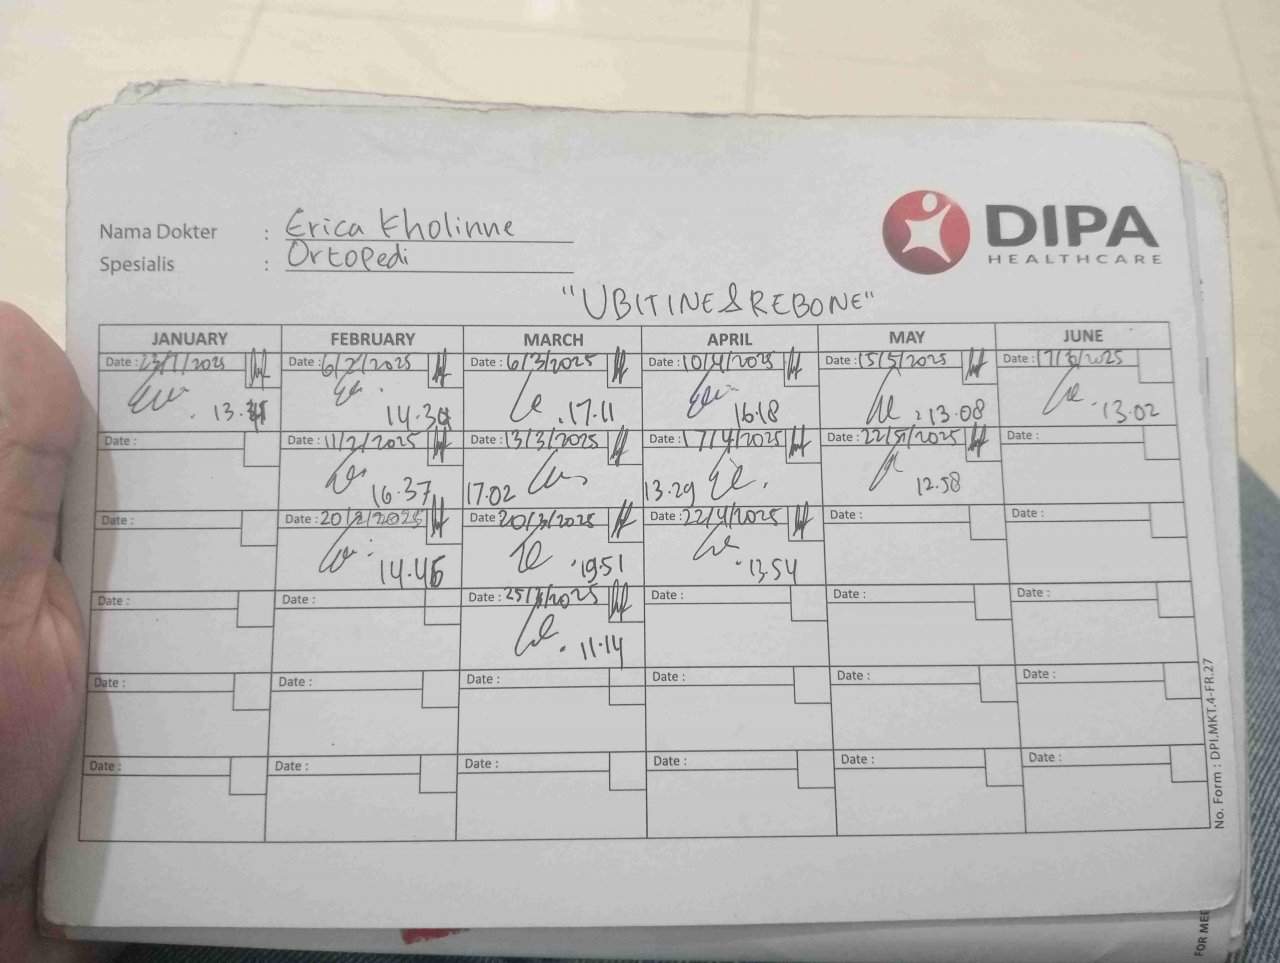 DIPA
HEALTHCARE
Nama Dokter : Erica Kholinne
Spesialis : Ortopedi
"UBITINE & REBONE"
JANUARY FEBRUARY MARCH APRIL MAY JUNE
Date : 23/1/2025 Date : 6/2/2025 Date : 6/3/2025 Date : 10/4/2025 Date : 15/5/2025 Date : 17/6/2025
14.34 17.11 16.18 13.08 13.02
Date : Date : 11/2/2025 Date : 13/3/2025 Date : 17/4/2025 Date : 22/5/2025 Date :
16.37 17.02 13.29 12.58
Date : Date : 20/2/2025 Date 20/3/2025 Date : 22/4/2025 Date : Date :
14.46 19.51 13.54
Date : Date : Date : 25/3/2025 Date : Date : Date :
11.14
Date : Date : Date : Date : Date : Date :
Date : Date : Date : Date : Date : Date :
No. Form : DPI.MKT.4-FR.27